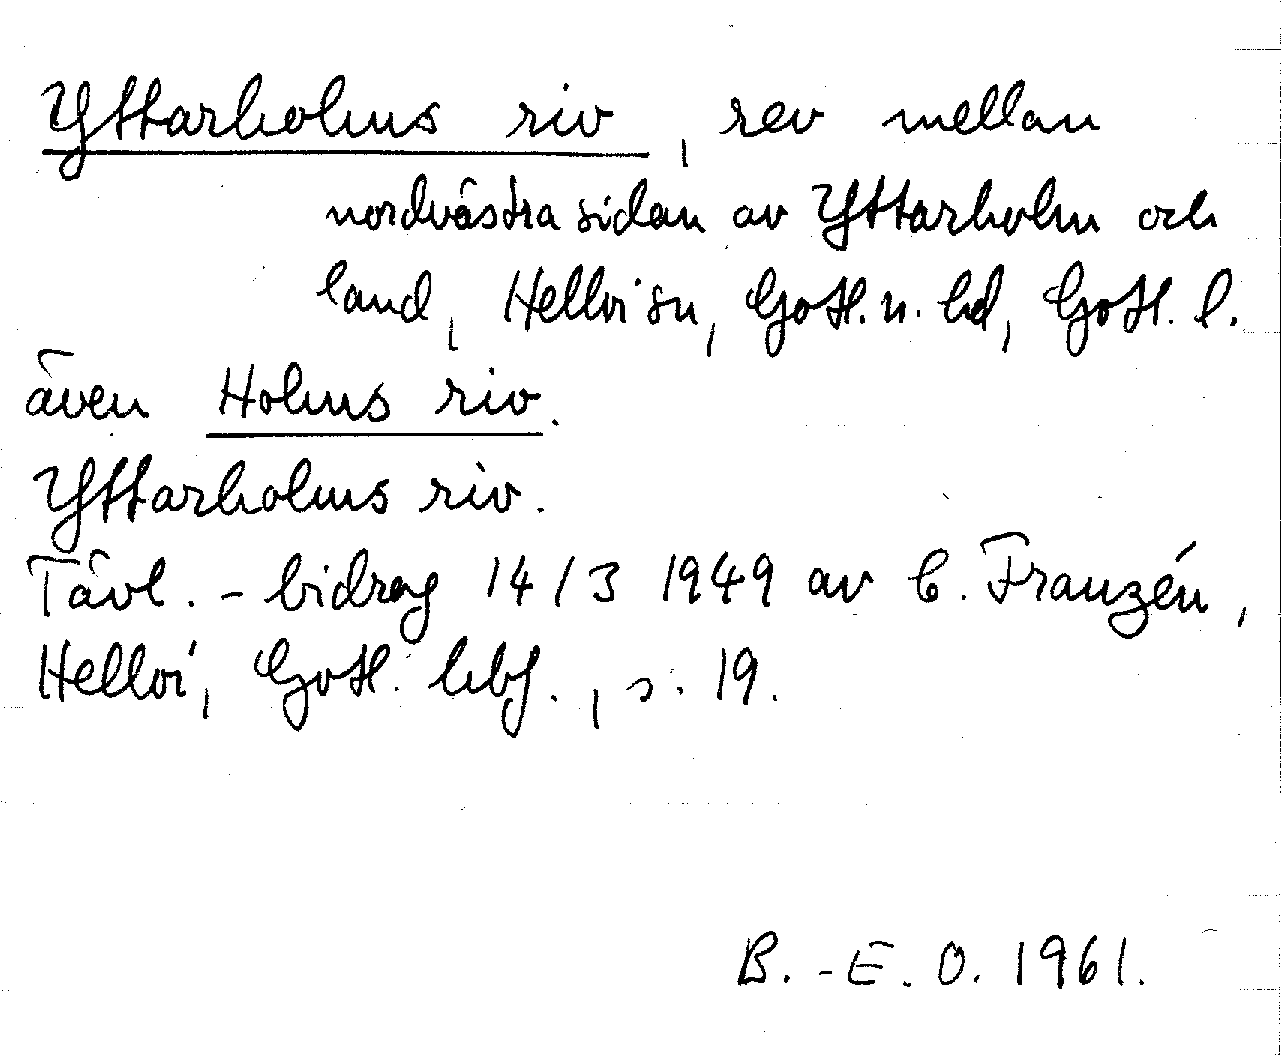 Yttarholms riv, rev mellan
nordvästra sidan av Yttarholm och
land, Hellvi sn, Gotl. n. hd, Gotl. l.
även Holms riv.
Yttarholms riv.
Tävl. - bidrag 14/3 1949 av C. Franzén,
Hellvi, Gotl. hbf., s. 19.
B.-E. O. 1961.